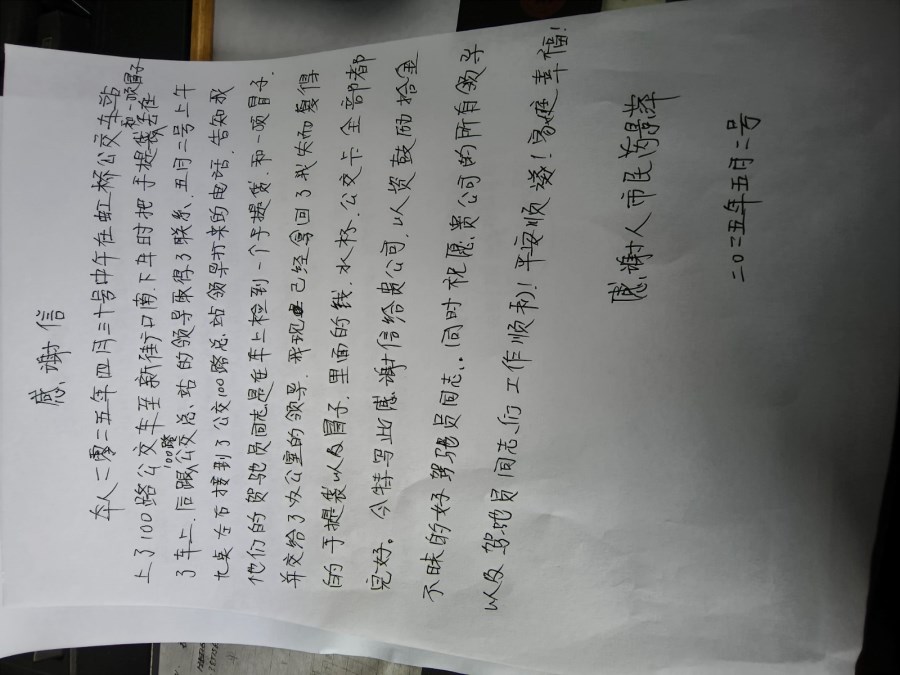 感谢信
本人二零二五年四月三十号中午在虹桥公交车站
上了100路公交车至新街口南.下车时把手提袋和一顶冒子丢在
了车上.后跟100路公交总站的领导取得了联系、五月二号上午
九点左右接到了公交100路总站领导打来的电话.告知我
他们的驾驶员同志是在车上检到一个手提袋.和一项冒子.
并交给了办公室的领导.我现已经拿回了我失而复得
的手提袋以及冒子.里面的线.水杯.公交卡全部都
完好。今特写此感谢信给贵公司.以资鼓励拾金
不昧的好驾驶员同志.同时祝愿贵公司的所有领导
以及驾驶员同志们工作顺利!平安顺发!家庭幸福!
感谢人市民
二〇二五年五月二号